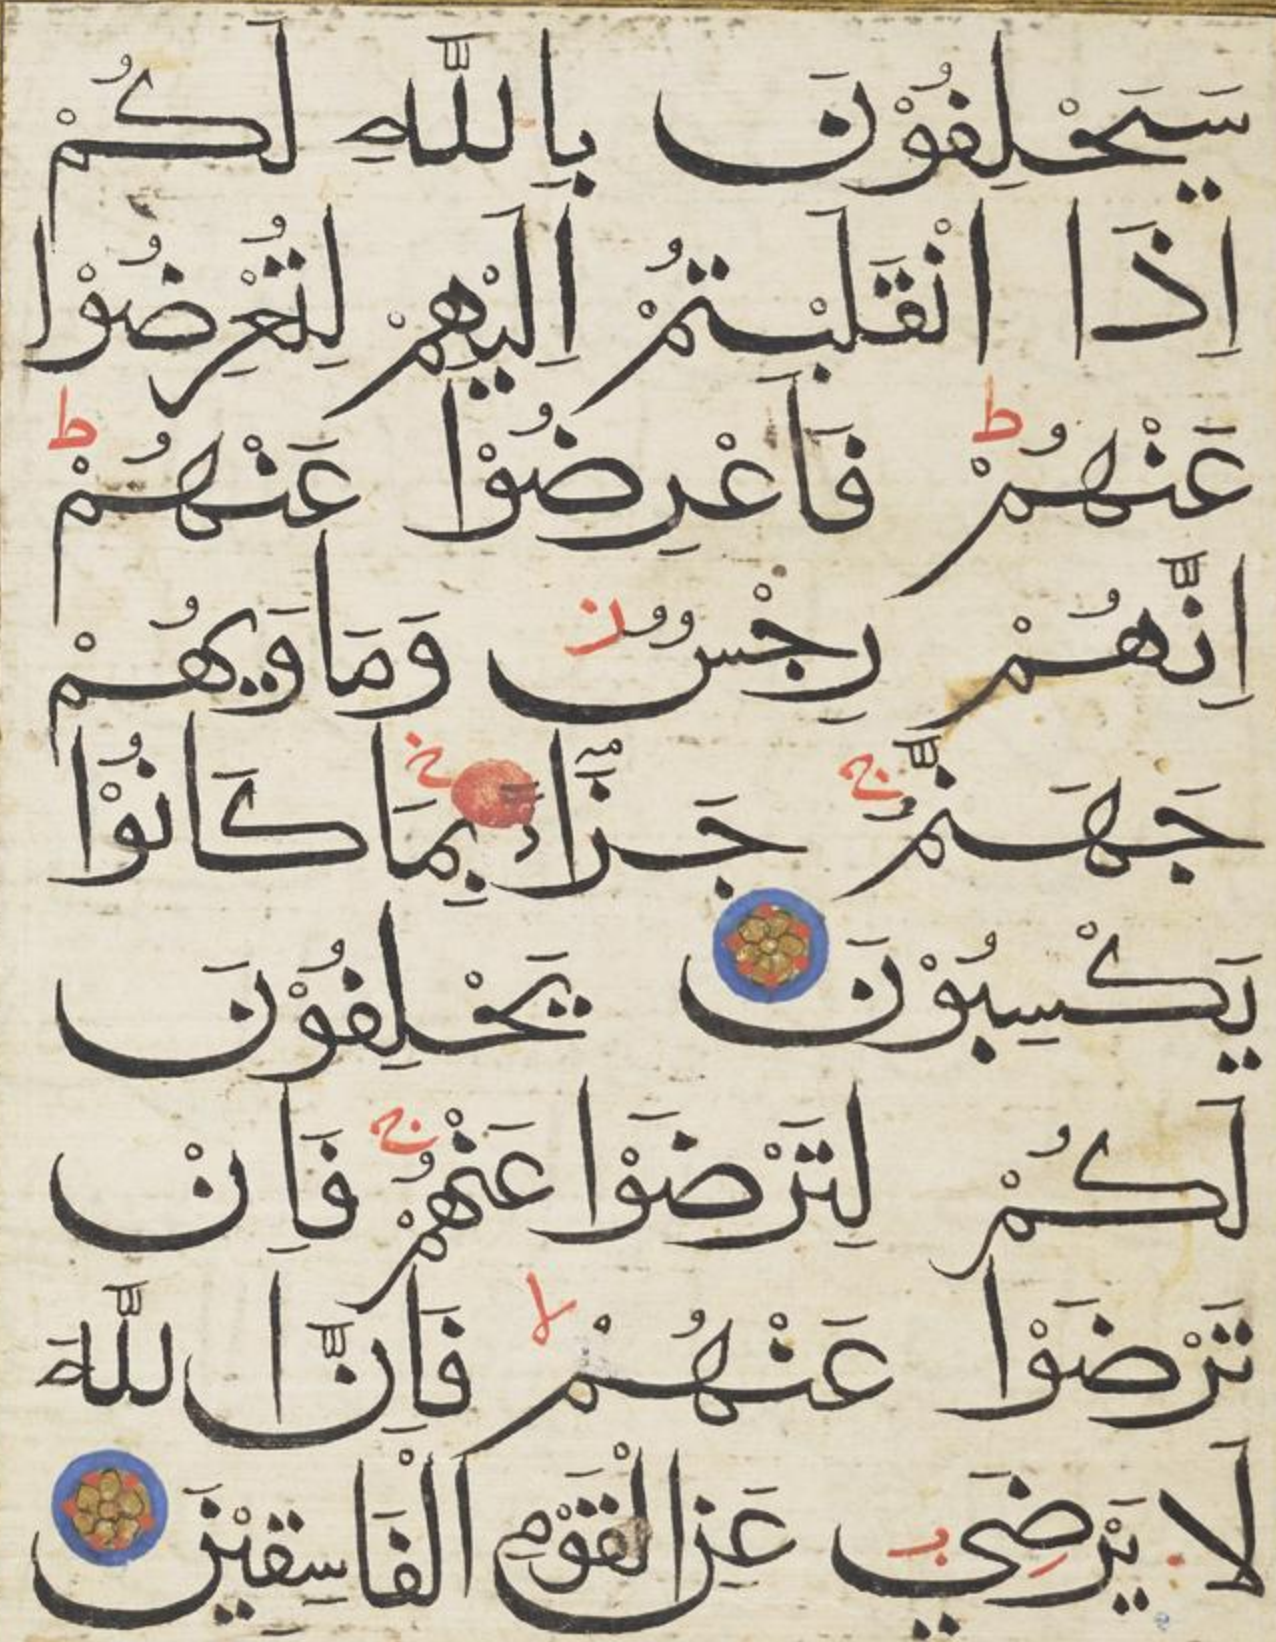 سَيَحْلِفُوْنَ بِاللّٰهِ لَكُمْ
اِذَا انْقَلَبْتُمْ اِلَيْهِمْ لِتُعْرِضُوْا
عَنْهُمْ ط فَاَعْرِضُوْا عَنْهُمْ ط
اِنَّهُمْ رِجْسٌ ز وَمَاوَيهُمْ
جَهَنَّمُ ج جَزَآءً بِمَا كَانُوْا
يَكْسِبُوْنَ يَحْلِفُوْنَ
لَكُمْ لِتَرْضَوْا عَنْهُمْ ج فَاِنْ
تَرْضَوْا عَنْهُمْ لا فَاِنَّ اللّٰهَ
لَا يَرْضَي عَنِ الْقَوْمِ الْفَاسِقِيْنَ